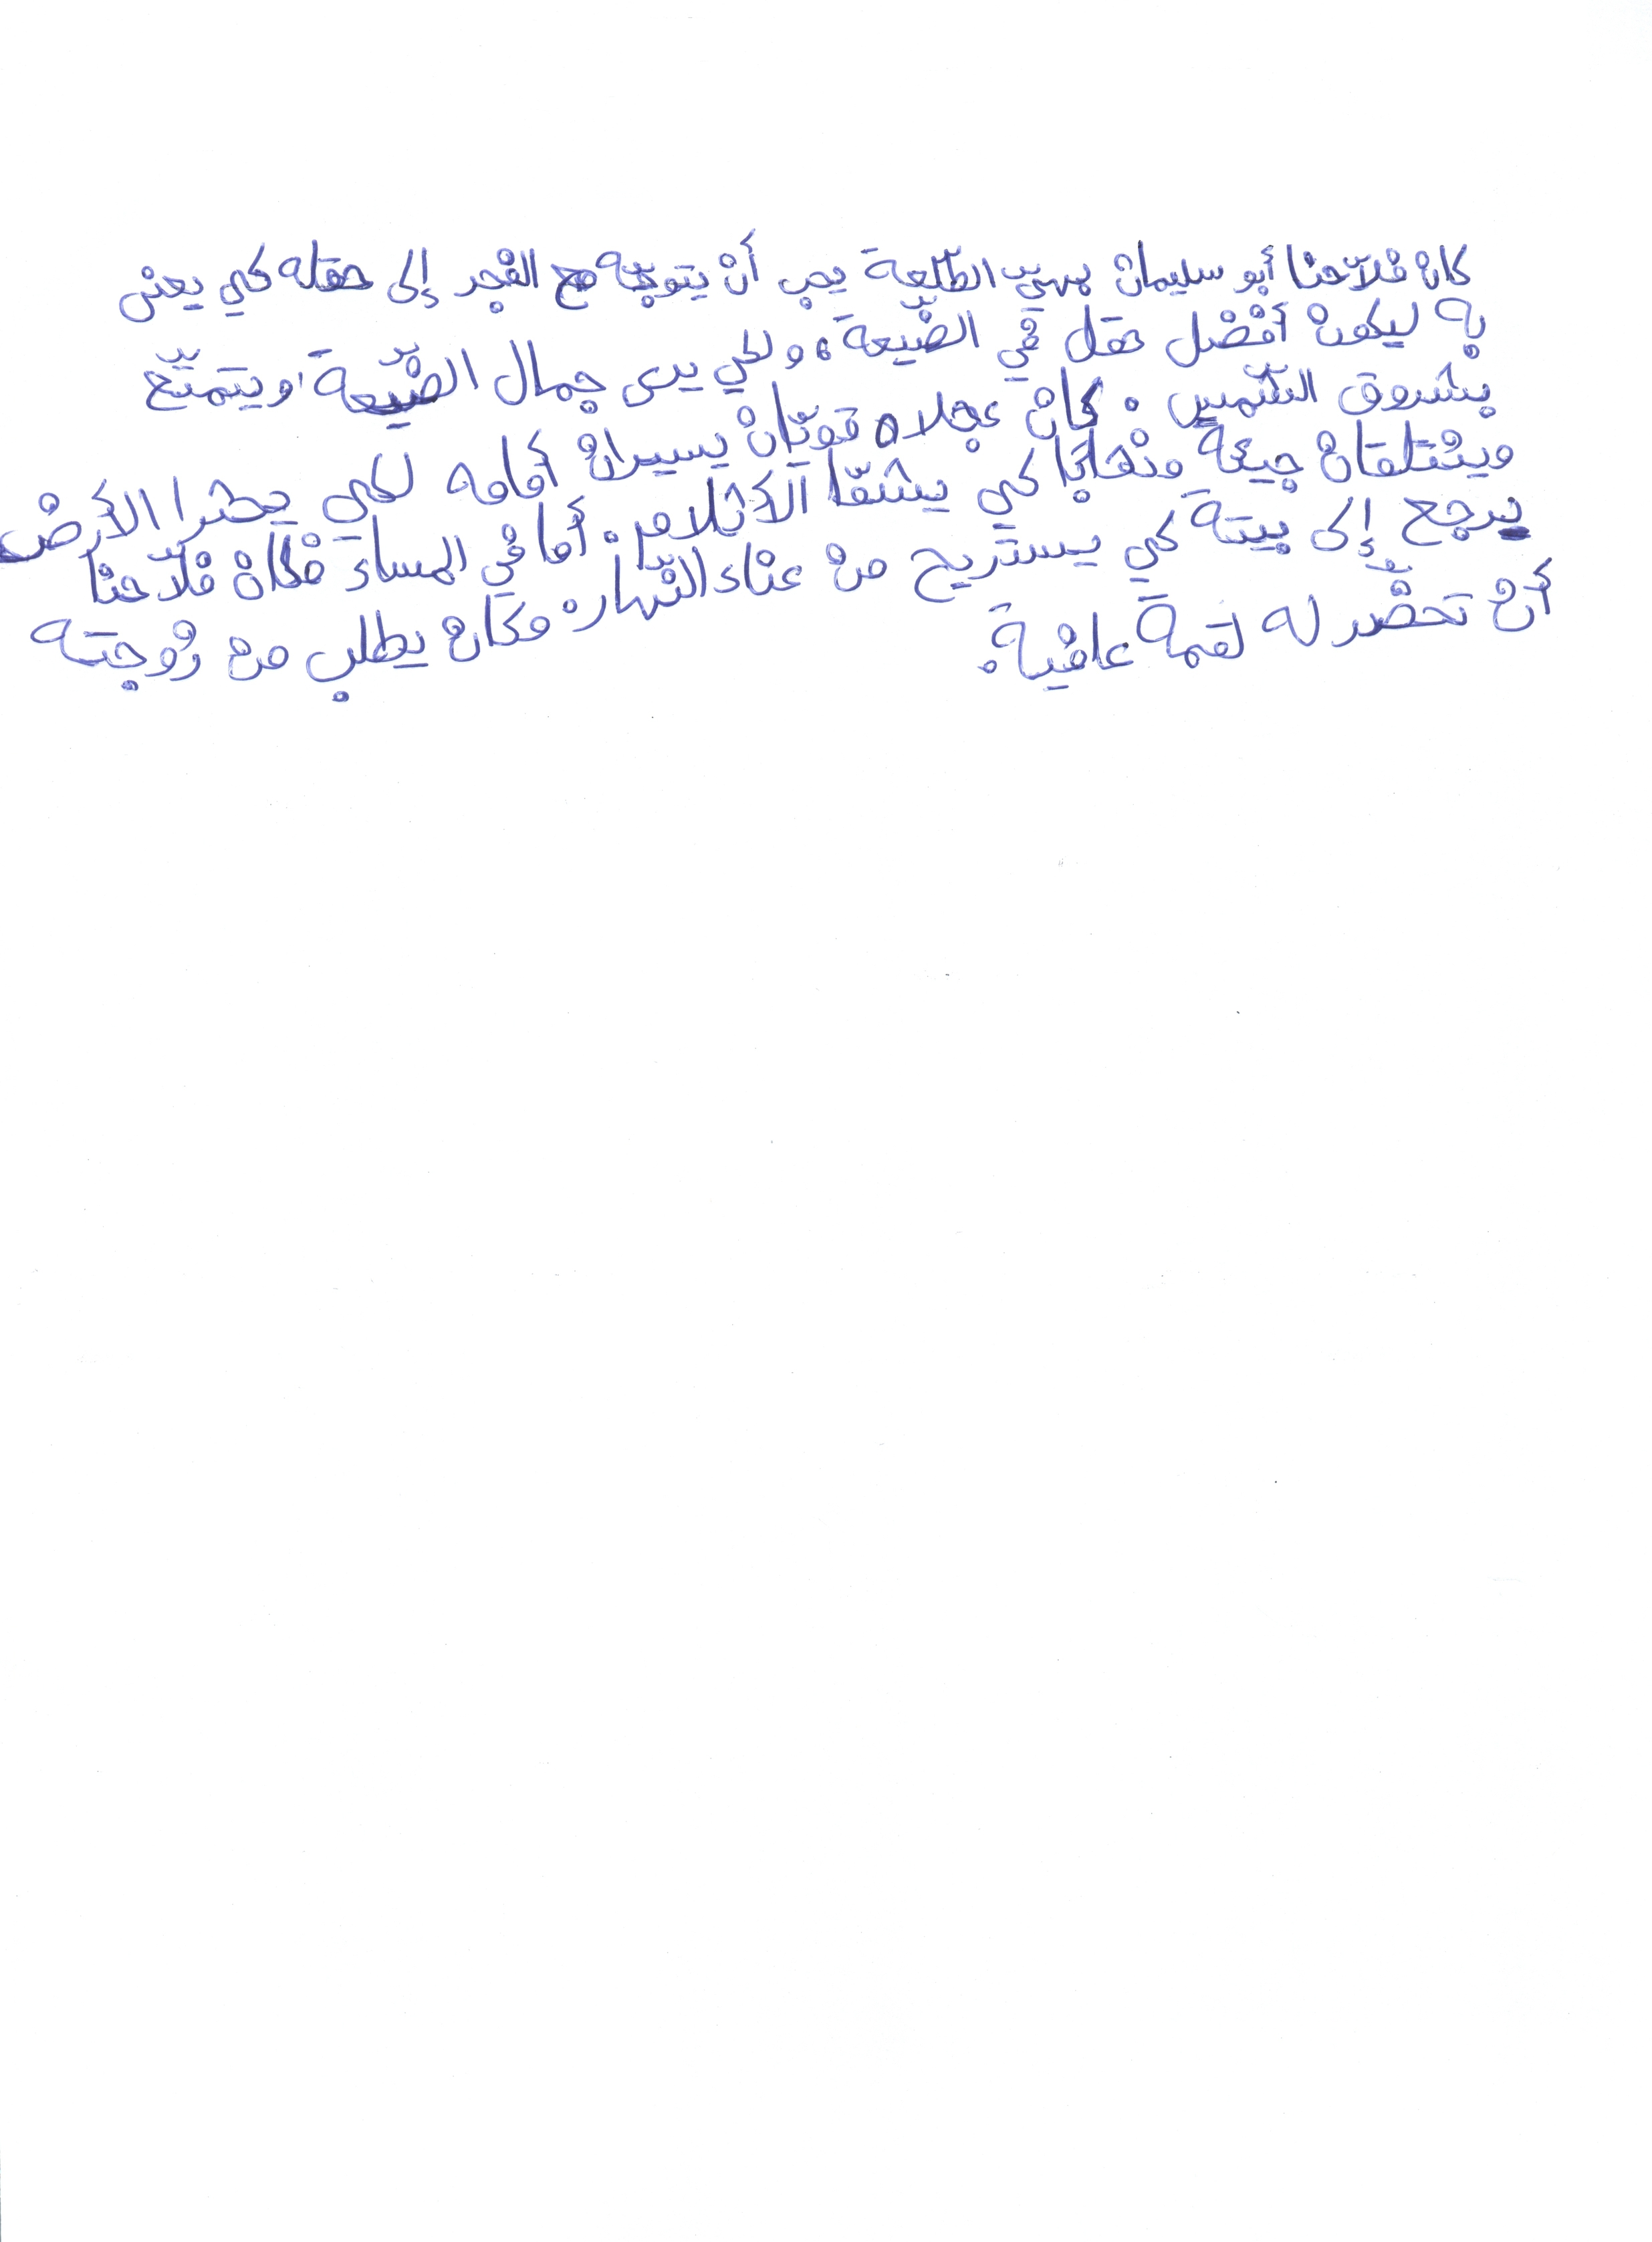 كان فلاّحنا أبو سليمان بهيّ الطّلعةِ يحب أن يتوجّه مع الفجر إلى حقله كي يعنى
به ليكون أفضل حقل في الضّيعةِ، ولكي يرى جمال الضّيّعةِ، ويتمتّع
بشروق الشّمس. كان عجلاه قويّان يسيران أمامه لكي يحثرا الأرض
وينتلقان جيئةً وذهابًا كي يشقّا الأثلام. أما في المساءِ فكان فلاّحنا
يرجع إلى بيتهِ كي يستريح من عناء النّهار. وكان يطلب من زوجته
أن تحضّر له لقمةً عافية.